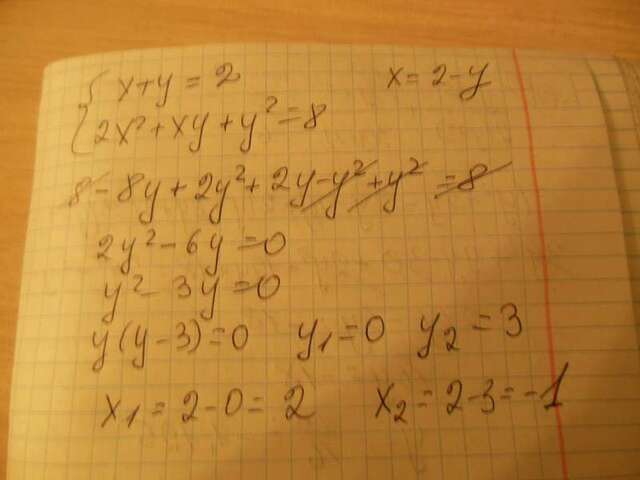 x+y=2 x=2-y
2x²+xy+y²=8
8-8y+2y²+2y-y²+y²=8
2y²-6y=0
y²-3y=0
y(y-3)=0 y₁=0 y₂=3
x₁=2-0=2 x₂=2-3=-1